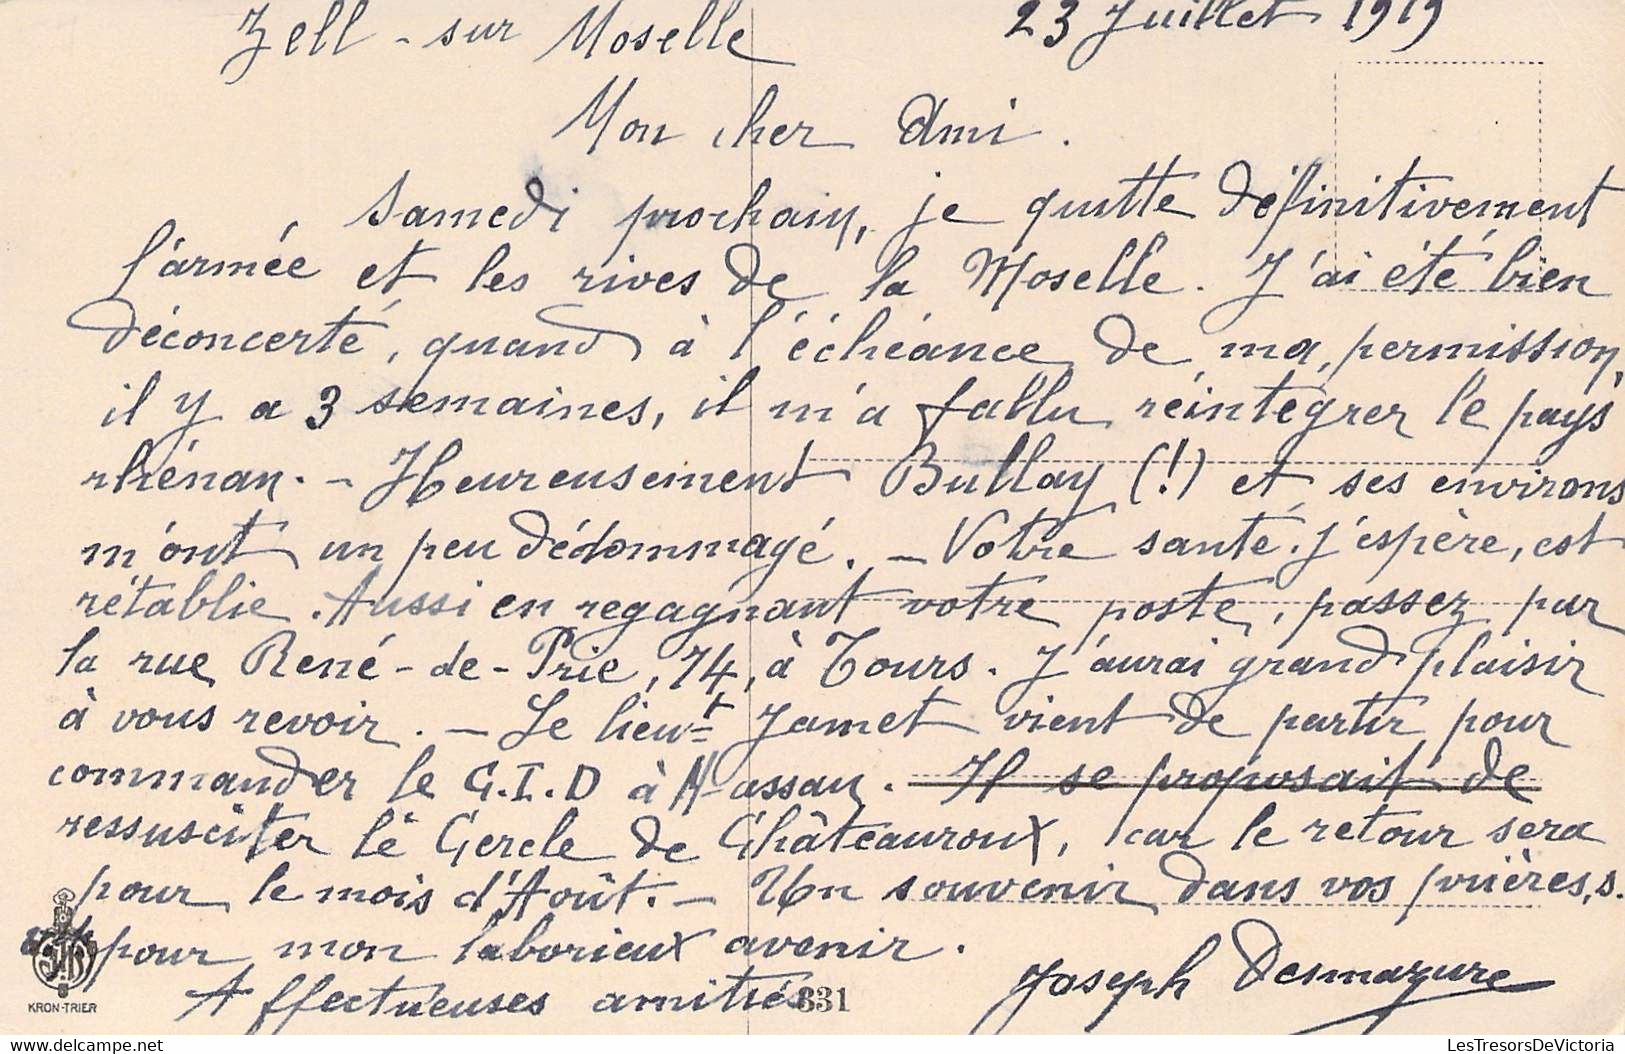 Zell - sur Moselle 23 Juillet 1919
Mon cher Ami.
Samedi prochain, je quitte définitivement
l'armée et les rives de la Moselle. J'ai été bien
déconcerté, quand à l'échéance de ma permission,
il y a 3 semaines, il m'a fallu réintégrer le pays
rhénan. - Heureusement Bullay (!) et ses environs
m'ont un peu dédommagé. - Votre santé, j'espère, est
rétablie. Aussi en regagnant votre poste, passez par
la rue René-de-Prie, 74, à Tours. J'aurai grand plaisir
à vous revoir. - Le lieut Jamet vient de partir pour
commander le G.I.D à Nassau. Il se proposait de
ressusciter le Cercle de Châteauroux, car le retour sera
pour le mois d'Août. - Un souvenir dans vos prières, s.
pour mon laborieux avenir.
Affectueuses amitiés Joseph Desmazure
KRON-TRIER
831
delcampe.net
LesTresorsDeVictoria